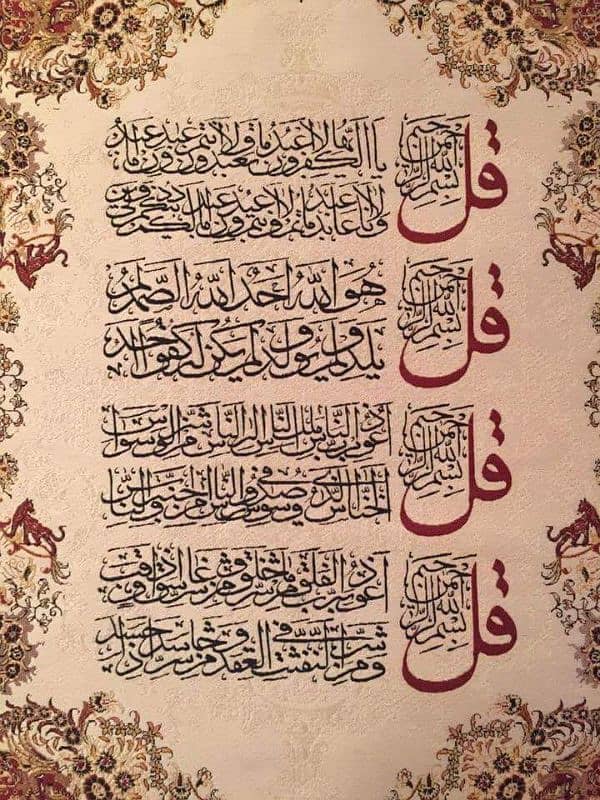 قل
بسم الله الرحمن الرحيم
يا أيها الكفرون لا أعبد ما تعبدون ولا أنتم عبدون ما أعبد
ولا أنا عابد ما عبدتم ولا أنتم عبدون ما أعبد لكم دينكم ولي دين
قل
بسم الله الرحمن الرحيم
هو الله أحد الله الصمد لم
يلد ولم يولد ولم يكن له كفوا أحد
قل
بسم الله الرحمن الرحيم
أعوذ برب الناس ملك الناس إله الناس من شر الوسواس
الخناس الذي يوسوس في صدور الناس من الجنة والناس
قل
بسم الله الرحمن الرحيم
أعوذ برب الفلق من شر ما خلق ومن شر غاسق إذا وقب
ومن شر النفثت في العقد ومن شر حاسد إذا حسد